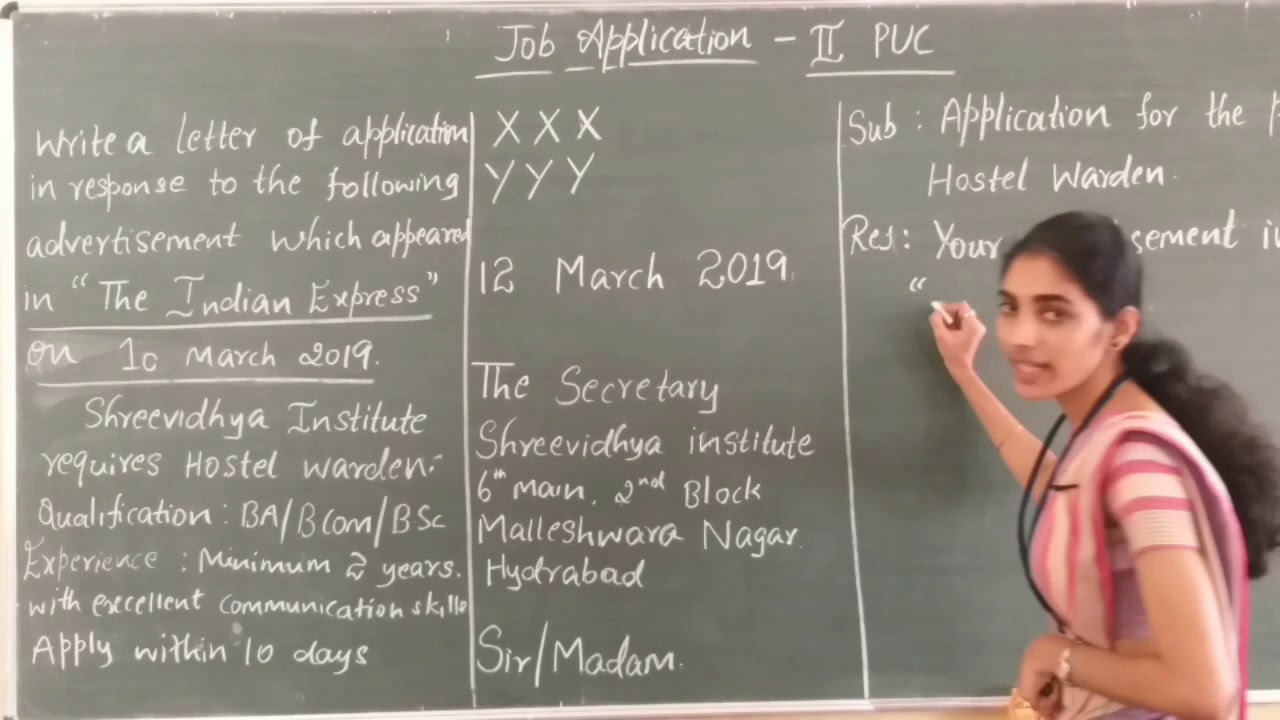 Job Application - II PUC
Write a letter of application
in response to the following
advertisement which appeared
in "The Indian Express"
on 10 March 2019.
Shreevidhya Institute
requires Hostel warden.
Qualification : BA/BCom/BSc
Experience : Minimum 2 years.
with excellent communication skills
Apply within 10 days
X X X
Y Y Y
12 March 2019.
The Secretary
Shreevidhya institute
6th main, 2nd Block
Malleshwara Nagar.
Hydrabad
Sir/Madam.
Sub : Application for the
Hostel Warden.
Res : Your
"